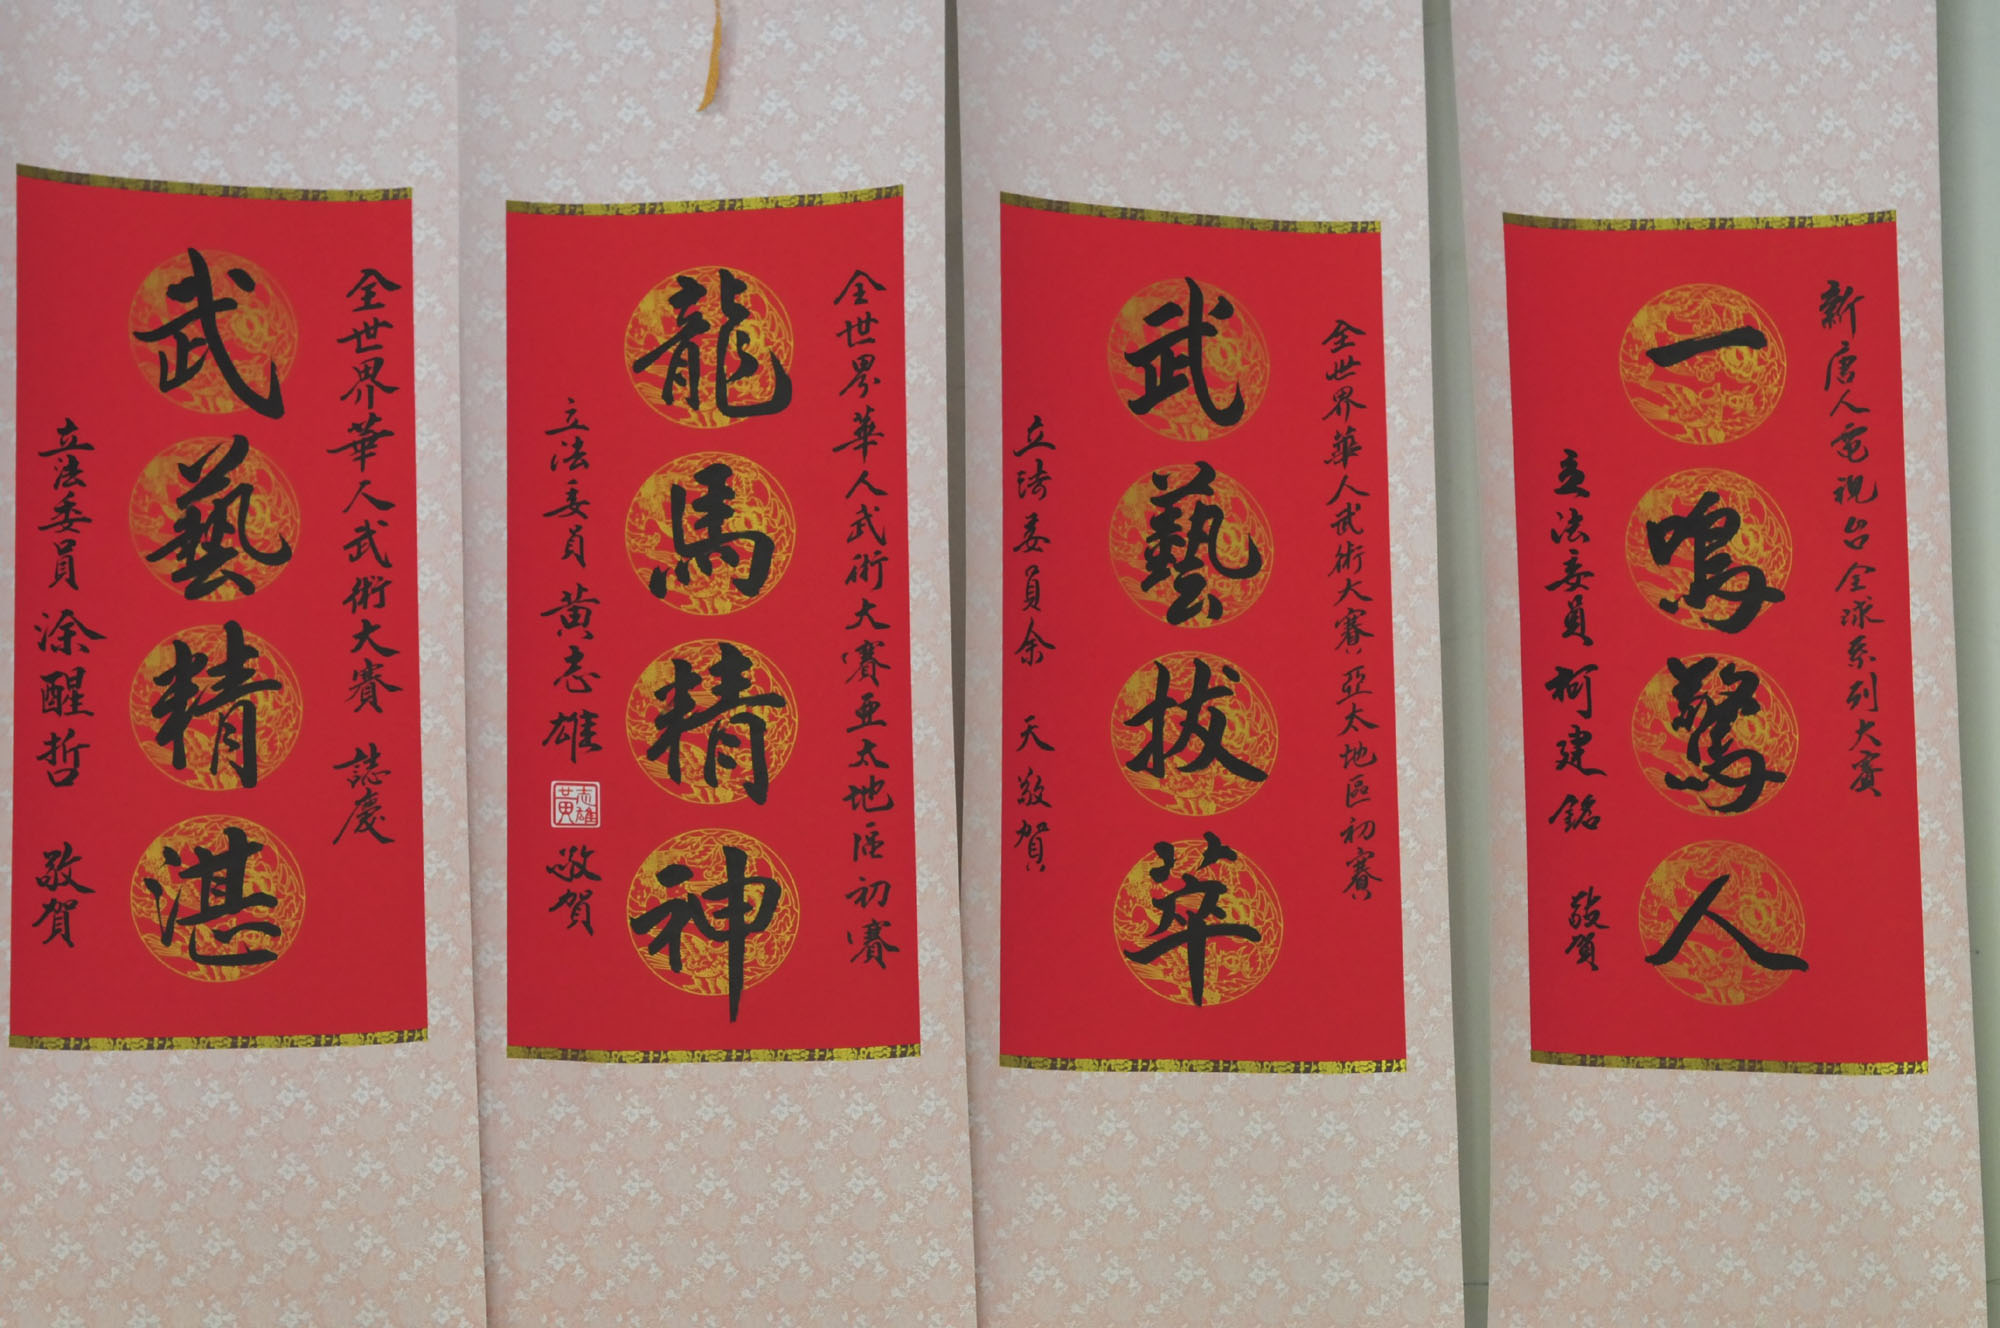 新唐人電視台全球系列大賽
一鳴驚人
立法委員 柯建銘 敬賀
全世界華人武術大賽亞太地區初賽
武藝拔萃
立法委員余 天敬賀
全世界華人武術大賽亞太地區初賽
龍馬精神
立法委員 黃志雄 敬賀
黃志雄
全世界華人武術大賽 誌慶
武藝精湛
立法委員 涂醒哲 敬賀